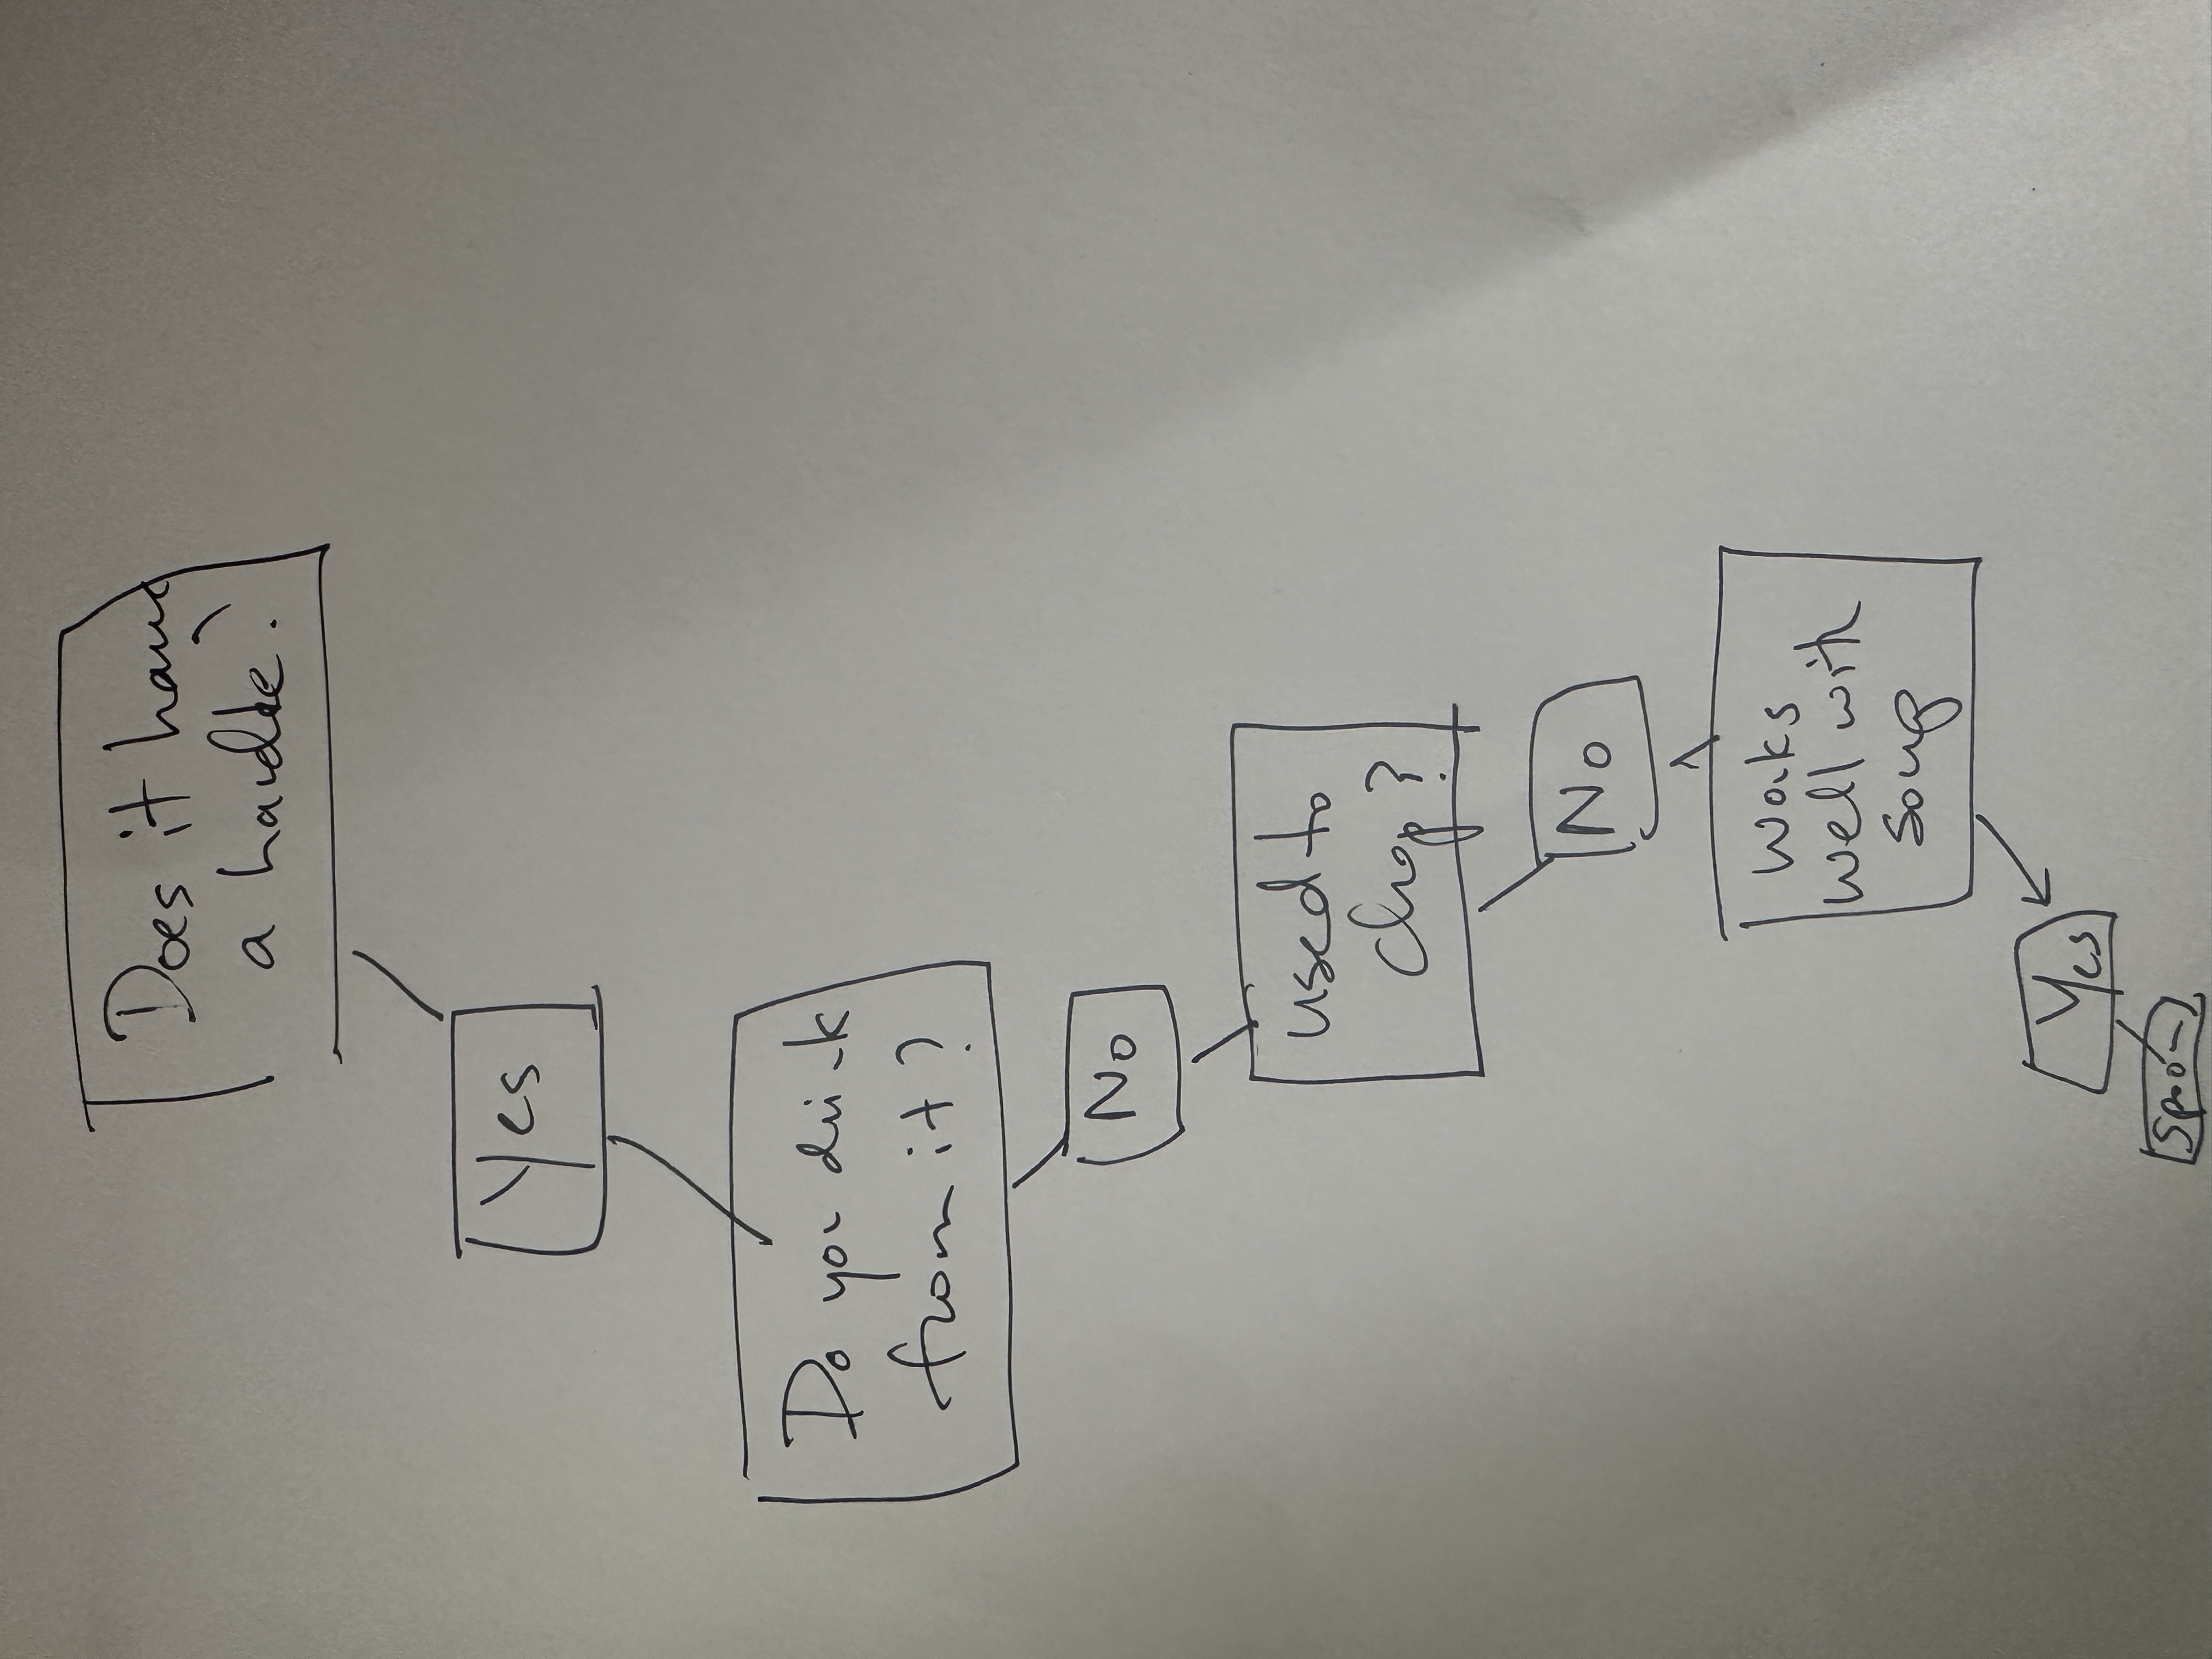 Does it have
a handle?
Yes
Do you drink
from it?
No
used to
chop?
No
Works
well with
soup
Yes
Spoon